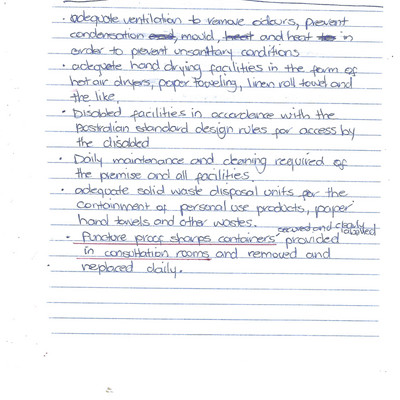 · adequate ventilation to remove odours, prevent
condensation and, mould, heat and heat to in
order to prevent unsanitary conditions
· adequate hand drying facilities in the form of
hot air dryers, paper toweling, linen roll towel and
the like,
· Disabled facilities in accordance with the
Australian standard design rules for access by
the disabled
· Daily maintenance and cleaning required of
the premise and all facilities.
· adequate solid waste disposal units for the
containment of personal use products, paper
hand towels and other wastes.
secured and clearly labelled
· Puncture proof sharps containers provided
in consultation rooms and removed and
replaced daily.